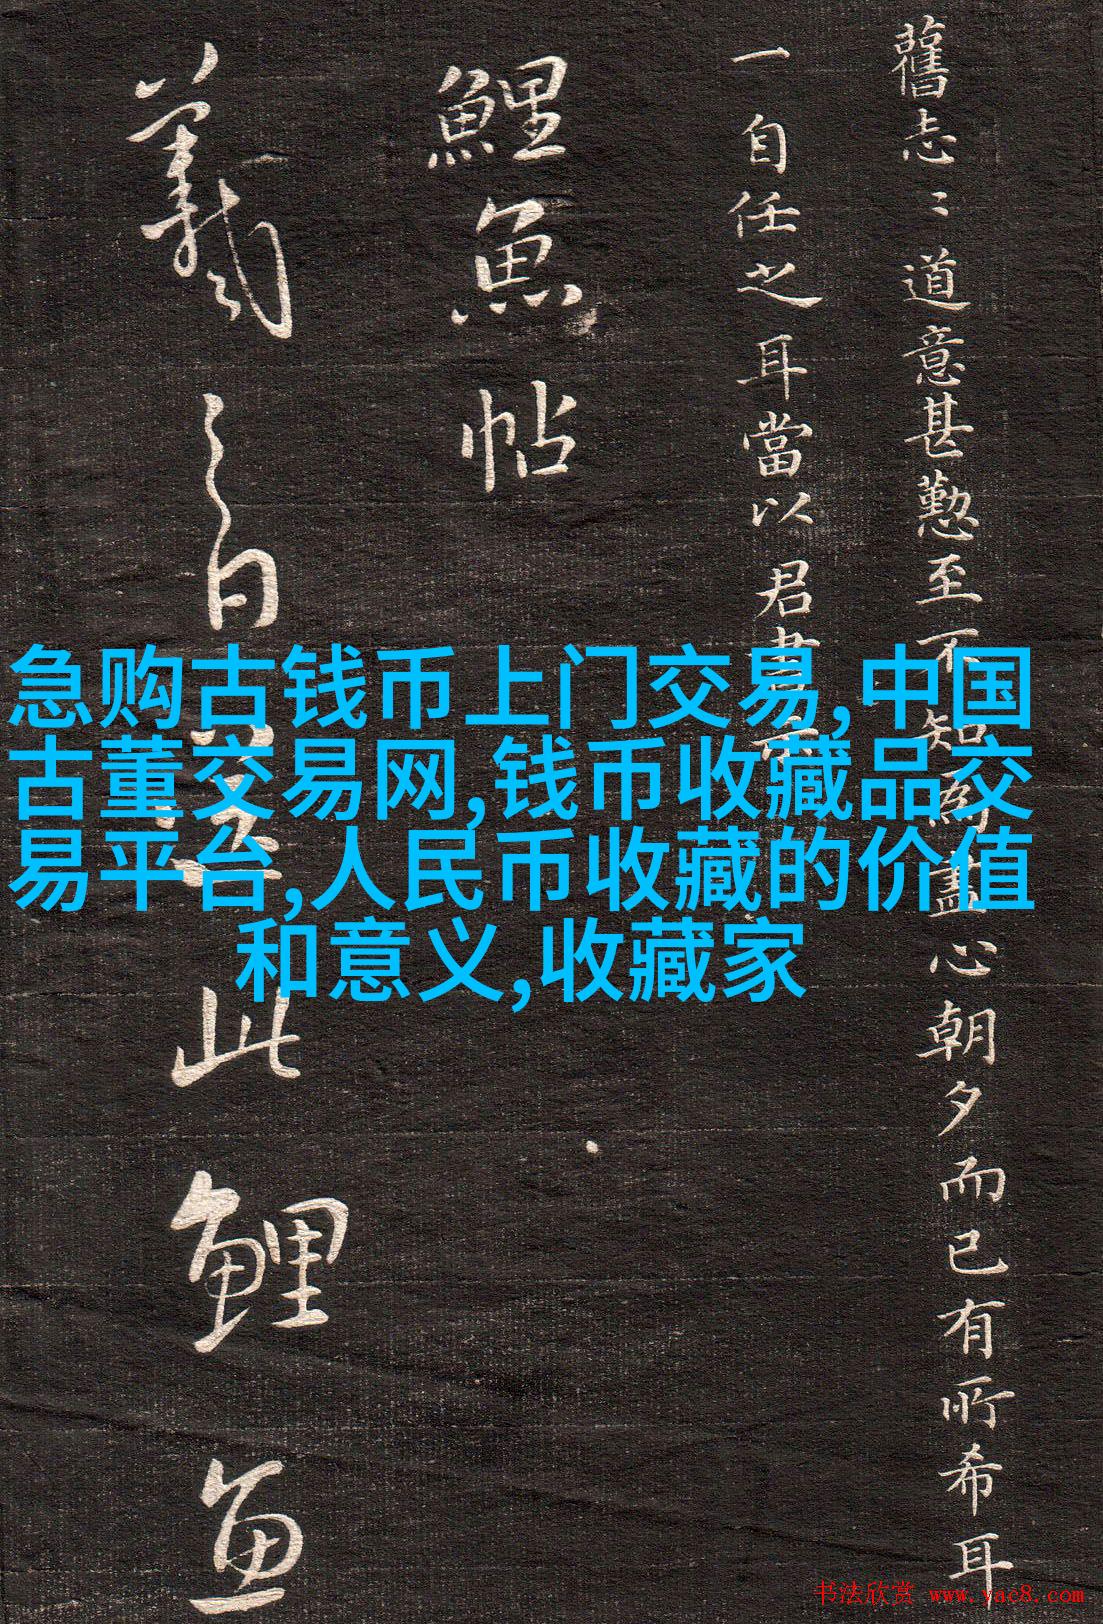 舊志〻道意甚懃至不知為盡心朝夕而已有所希耳
一自任之耳當以君書示
鯉魚帖
羲之白
此鯉魚
急购古钱币上门交易,中国
古董交易网,钱币收藏品交
易平台,人民币收藏的价值
和意义,收藏家
书法欣赏 www.yac8.com